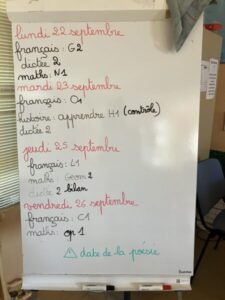 lundi 22 septembre
français : G2
dictée 2
maths : N1
mardi 23 septembre
français : C1
histoire : apprendre H1 (contrôle)
dictée 2
jeudi 25 septembre
français : L1
maths : Géom 2
dictée 2 bilan
vendredi 26 septembre
français : C1
maths : op 1
! date de la poésie